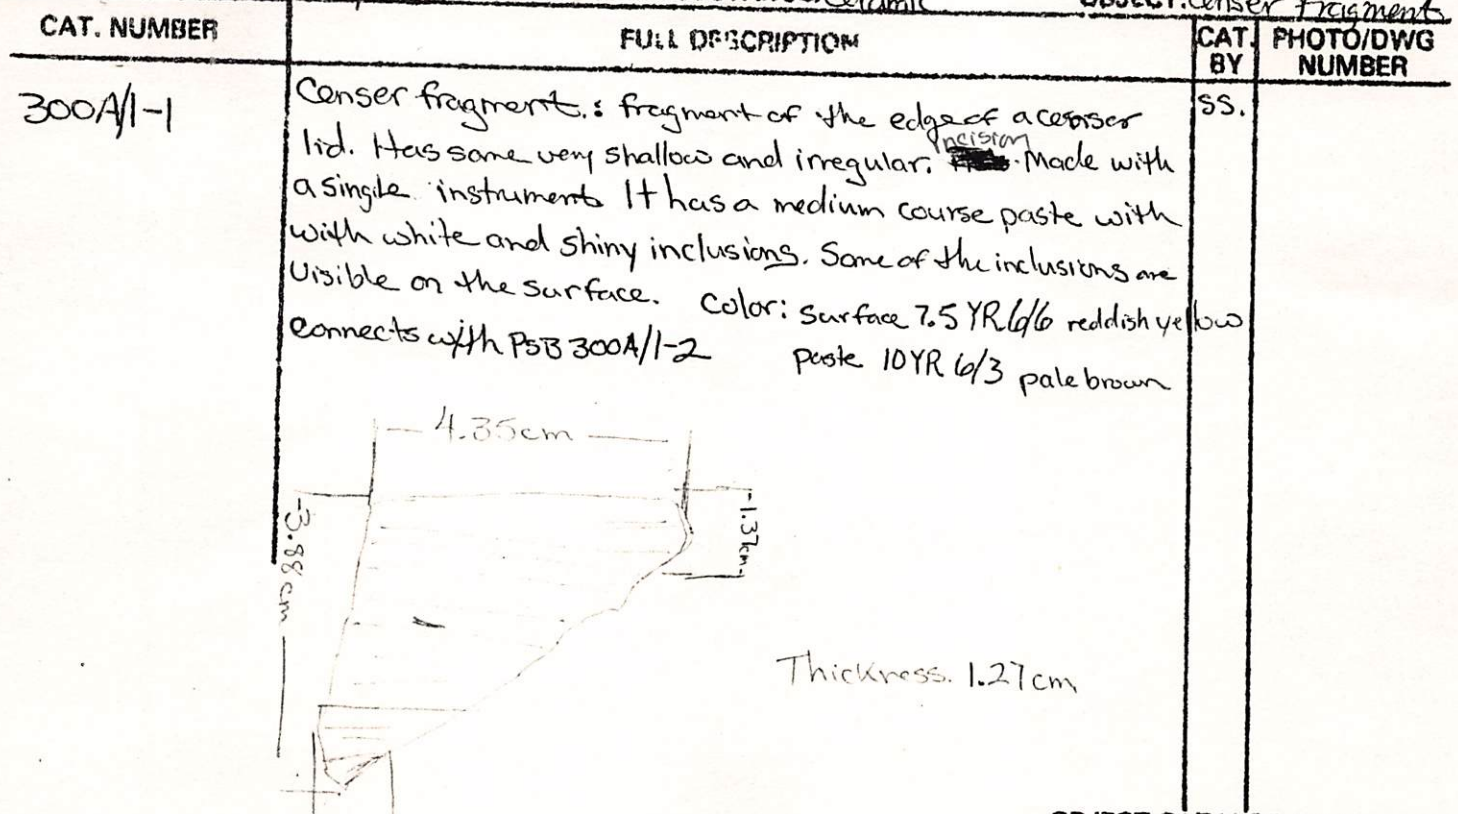 Ceramic OBJECT: Censer Fragments
CAT. NUMBER FULL DESCRIPTION CAT. BY PHOTO/DWG NUMBER
300A/1-1 Censer fragment.: fragment of the edge of a censer SS.
lid. Has some very shallow and irregular. incision Made with
a single instrument It has a medium course paste with
with white and shiny inclusions. Some of the inclusions are
visible on the surface. Color: Surface 7.5 YR 6/6 reddish yellow
connects with PSB 300A/1-2 paste 10YR 6/3 pale brown
4.35cm
3.88 cm
1.37cm
Thickness. 1.27cm